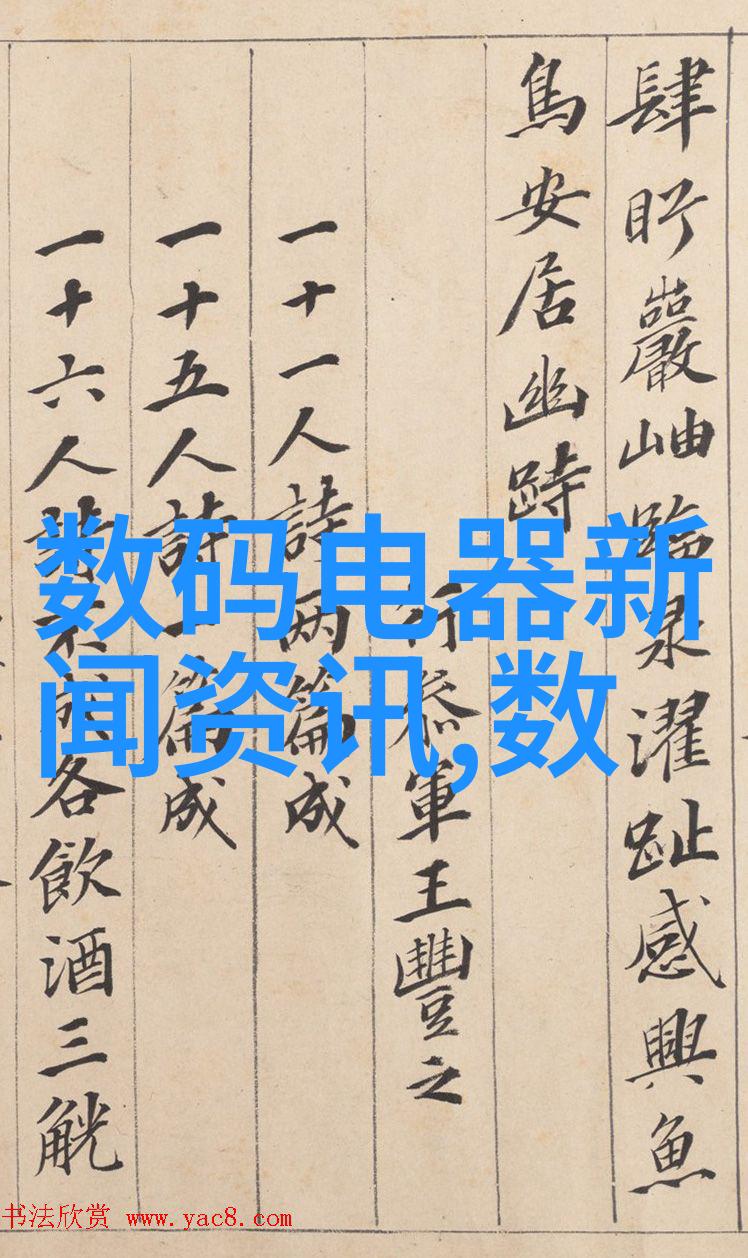 肆盻巖岫臨泉濯趾感興魚
鳥安居幽跱
行叅軍王豐之
一十一人詩兩篇成
一十五人詩一篇成
一十六人詩不成各飲酒三觥
数码电器新
闻资讯,数
书法欣赏 www.yac8.com